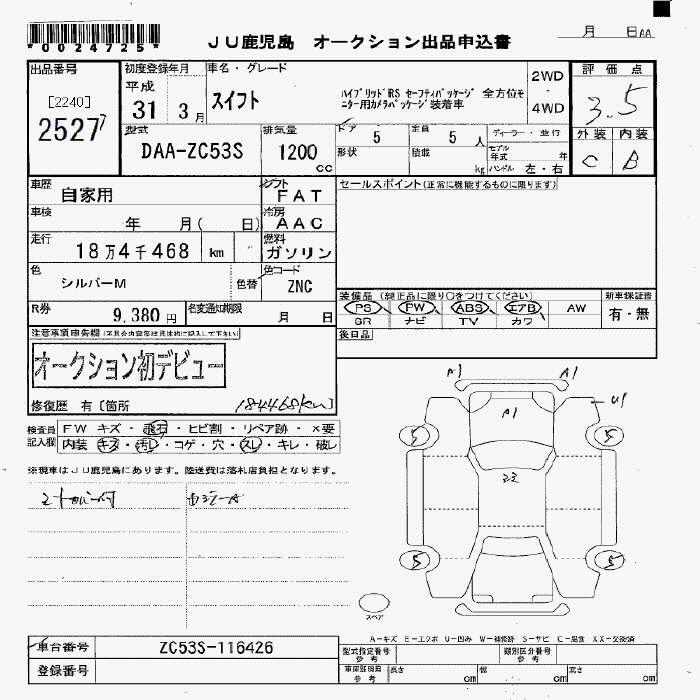 *0024725*
JU鹿児島 オークション出品申込書
月 日
出品番号
[2240]
25277
初度登録年月
平成
31 3月
車名・グレード
スイフト
ハイブリッドRS セーフティパッケージ 全方位モニター用カメラパッケージ装着車
2WD
・
4WD
評価点
3.5
外装 内装
C B
型式
DAA-ZC53S
排気量
1200
cc
ドア
5
定員
5 人
形状
積載
kg
ディーラー・並行
モデル年式 年
ハンドル 左・右
車歴
自家用
シフト
FAT
車検
年 月( 日)
冷房
AAC
走行
18万4千468 km
燃料
ガソリン
色
シルバーM
色替
色コード
ZNC
R券
9,380 円
名変通知期限
月 日
セールスポイント(正常に機能するものに限ります)
装備品 (純正品に限り○をつけてください)
PS PW ABS エアB AW
SR ナビ TV カワ
新車保証書
有・無
後日品
オークション初デビュー
修復歴 有[箇所
184468km]
検査員記入欄
FW キズ・飛石・ヒビ割・リペア跡・×要
内装・キズ・汚レ・コゲ・穴・スレ・キレ・破レ
※現車はJU鹿児島にあります。陸送費は落札店負担となります。
A1 A1
A1
U1
5 5
5 5
スペア
A-キズ E-エクボ U-凹み W-補修跡 S-サビ C-腐食 XX-交換済
車台番号
ZC53S-116426
登録番号
型式指定番号
参考
類別区分番号
参考
長さ cm
幅 cm
高さ cm